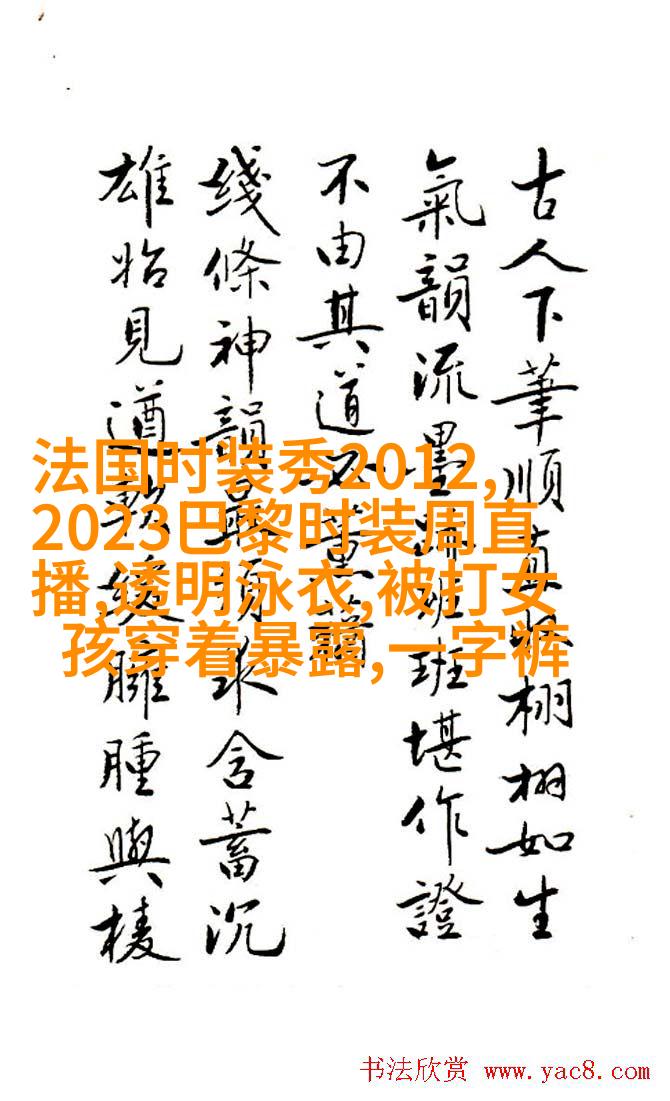 古人下筆順栩栩如生
氣韻流墨班堪作證
不由其道
綫條神韻最須求含蓄沉
雄始見遒臃腫與棱
法国时装秀2012,
2023巴黎时装周直
播,透明泳衣,被打女
孩穿着暴露,一字裤
书法欣赏 www.yac8.com